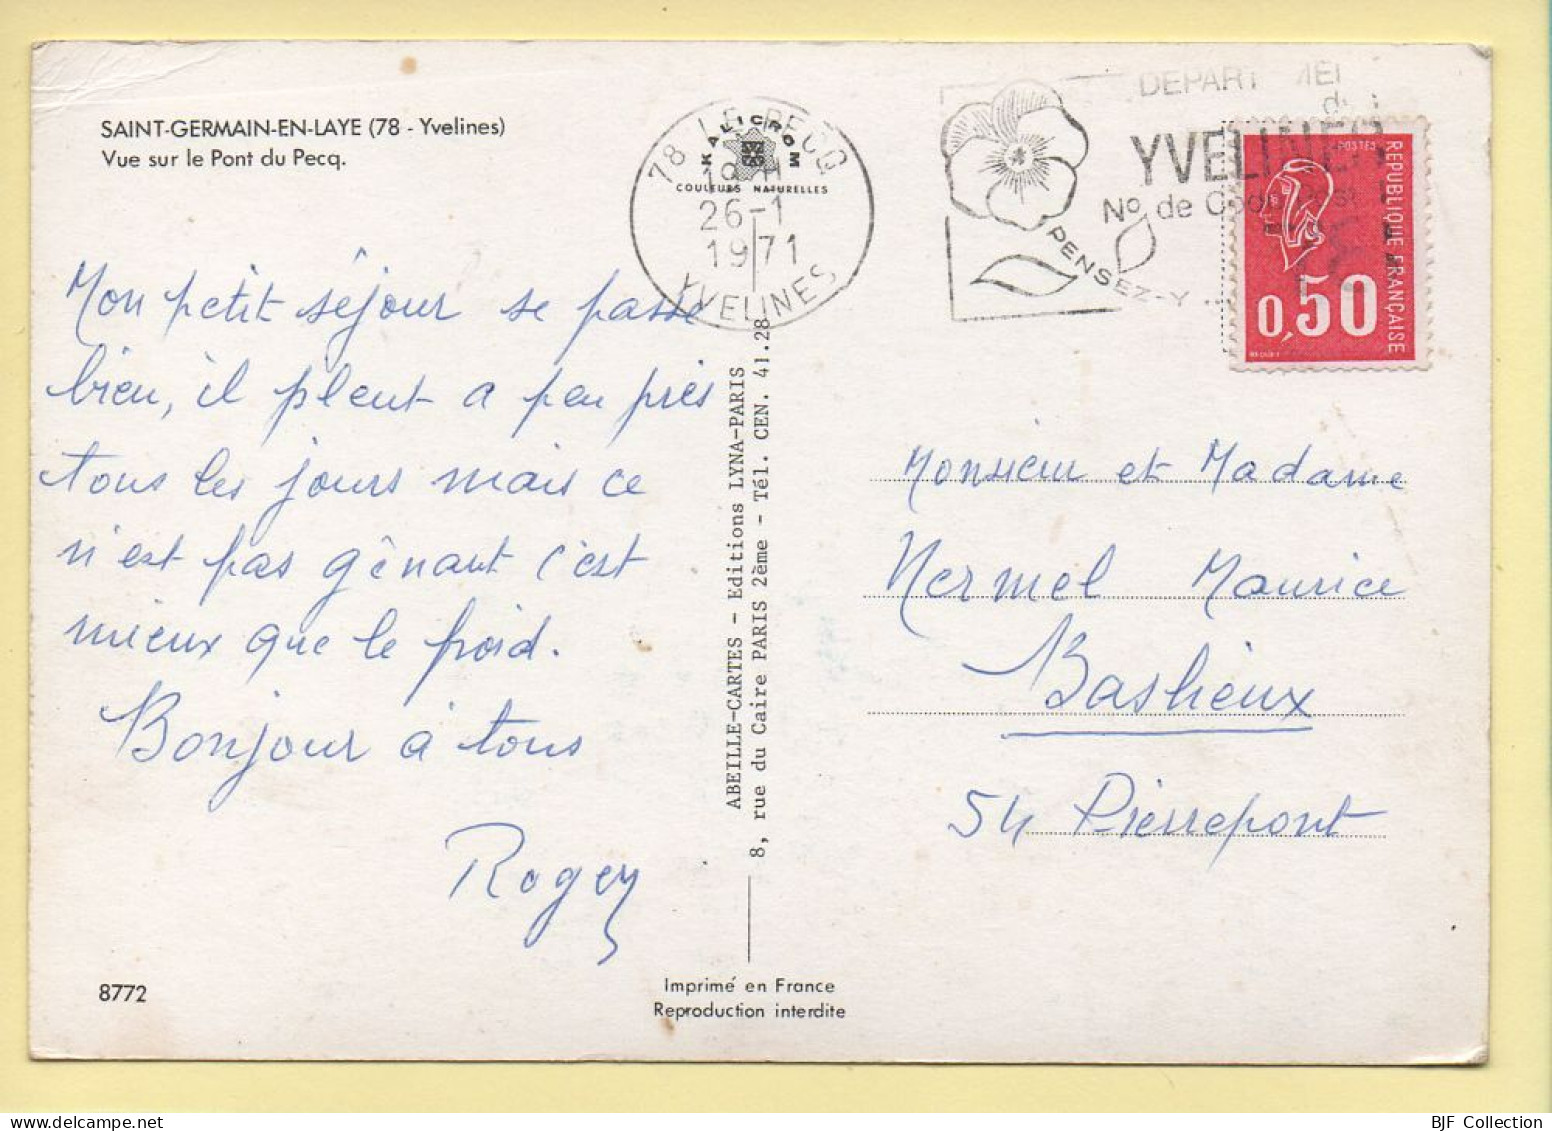 SAINT-GERMAIN-EN-LAYE (78 - Yvelines)
Vue sur le Pont du Pecq.
Mon petit séjour se passe
bien, il pleut a peu près
tous les jours mais ce
n'est pas gênant c'est
mieux que le froid.
Bonjour à tous
Roger
8772
78 LE PECQ
26-1
1971
YVELINES
KALICROM
COULEURS NATURELLES
ABEILLE-CARTES - Editions LYNA-PARIS
8, rue du Caire PARIS 2ème - Tél. CEN. 41.28
Imprimé en France
Reproduction interdite
YVELINES
No de
PENSEZ-Y ...
POSTES
REPUBLIQUE FRANÇAISE
0,50
Monsieur et Madame
Nermel Maurice
Baslieux
54 Pierrepont
BJF Collection